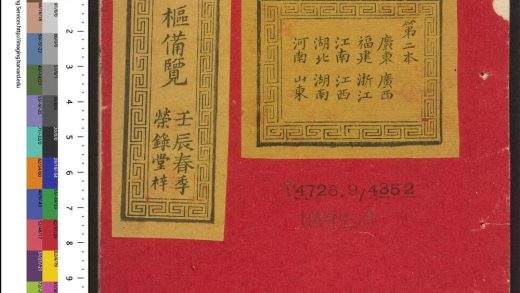 第二本
廣東 廣西
福建 浙江
江南 江西
湖北 湖南
河南 山東
樞備覽
壬辰春季
榮錄堂梓
T4726.9/4352
2
3
4
5
6
7
8
9